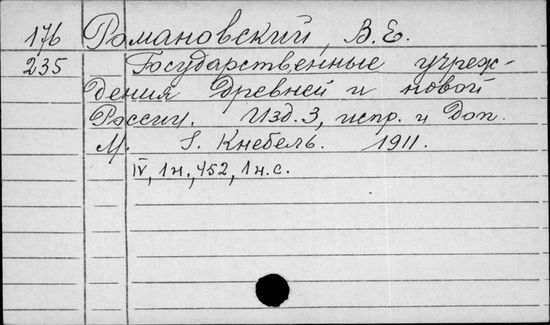 176 Романовский, В.Е.
235 Государственные учреж-
дения древней и новой
России. Изд. 3, испр. и доп.
М. I. Кнебель. 1911.
IV, 1 н., 452, 1 н. с.